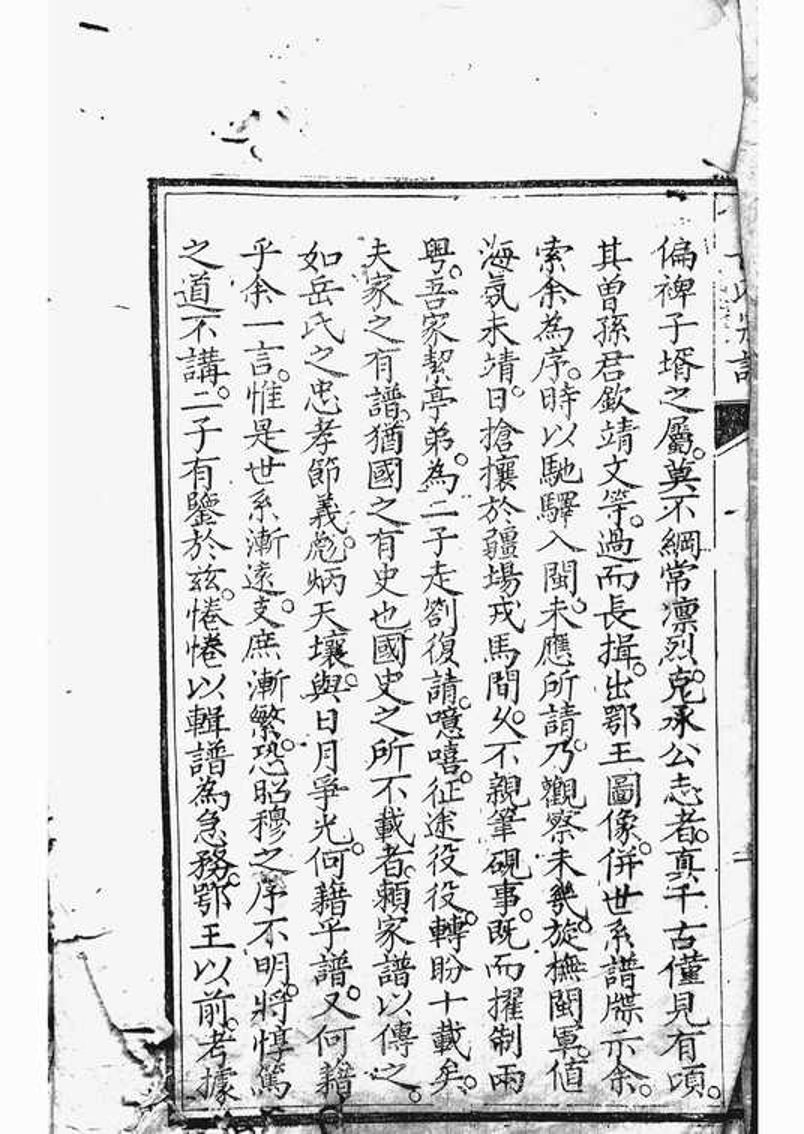 偏裨子壻之屬。莫不綱常凛烈。克承公志者。真千古僅見有頃。
其曽孫君欽靖文等。過而長揖。出鄂王圖像。併世系譜牒示余。
索余為序。時以馳驛入閩。未應所請。乃觀察未幾。旋撫閩軍。值
海氛未靖。日搶攘於疆場戎馬間。久不親筆硯事。既而擢制兩
粵。吾家絜亭弟。為二子走劄復請。噫嘻。征途役役。轉盼十載矣。
夫家之有譜。猶國之有史也。國史之所不載者。賴家譜以傳之。
如岳氏之忠孝節義。彪炳天壤。與日月爭光。何藉乎譜。又何藉
乎余一言。惟是世系漸遠。支庶漸繁。恐昭穆之序不明。將惇篤
之道不講。二子有鑒於玆。惓惓以輯譜為急務。鄂王以前。考據